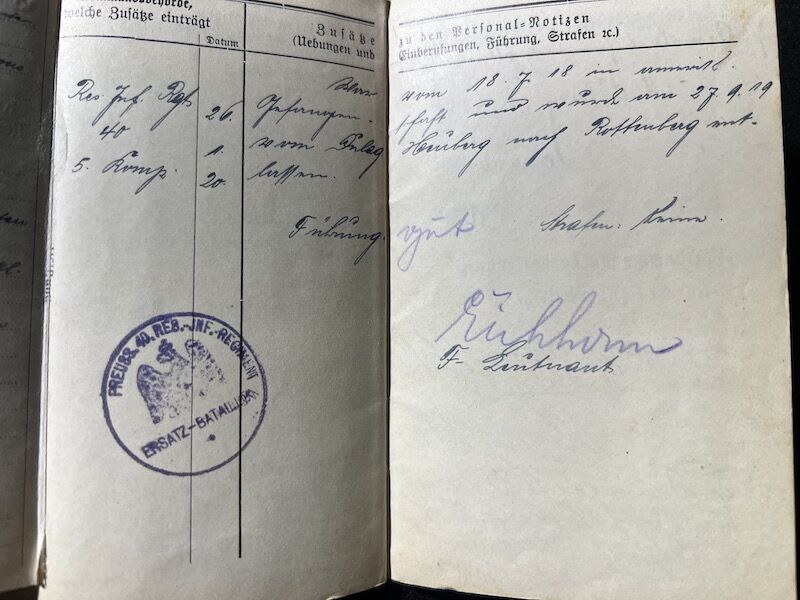 welche Zusätze einträgt
Datum
Zusätze
(Uebungen und
zu den Personal-Notizen
Einberufungen, Führung, Strafen ec.)
Res Inf. Rgt.
40
5. Komp.
26.
1.
20.
War
vom 18.7.18 in amerik.
Gefangen-
schaft und wurde am 27.9.19
vom
Heuberg nach Rottenberg ent-
lassen.
Führung.
gut
Strafen: Keine.
PREUSS. 40. RES.-INF.-REGIMENT
ERSATZ-BATAILLON
Eichhorn
F- Leutnant